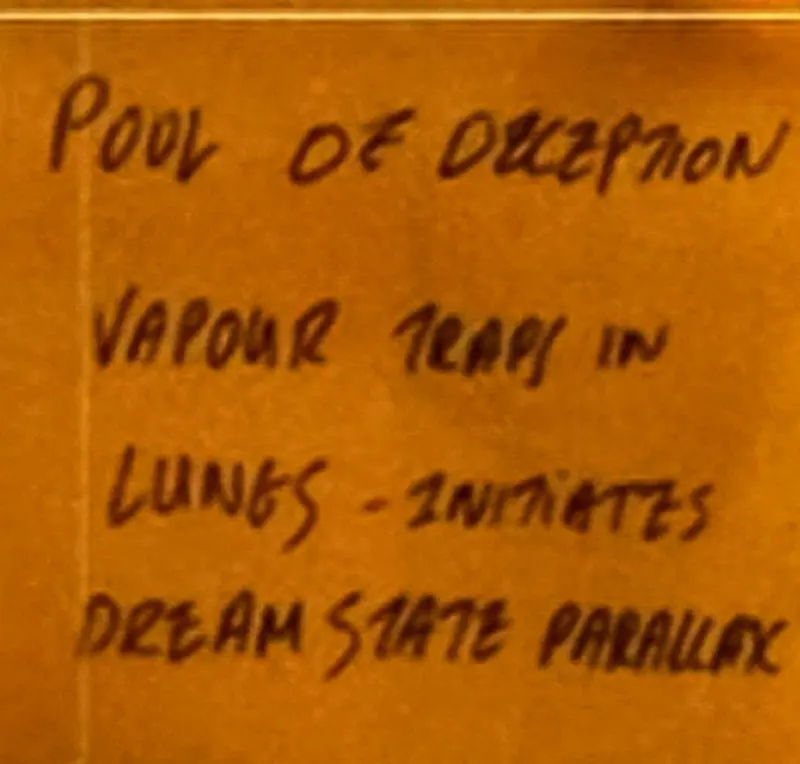 POOL OF DECEPTION
VAPOUR TRAPS IN
LUNGS - INITIATES
DREAM STATE PARALLAX